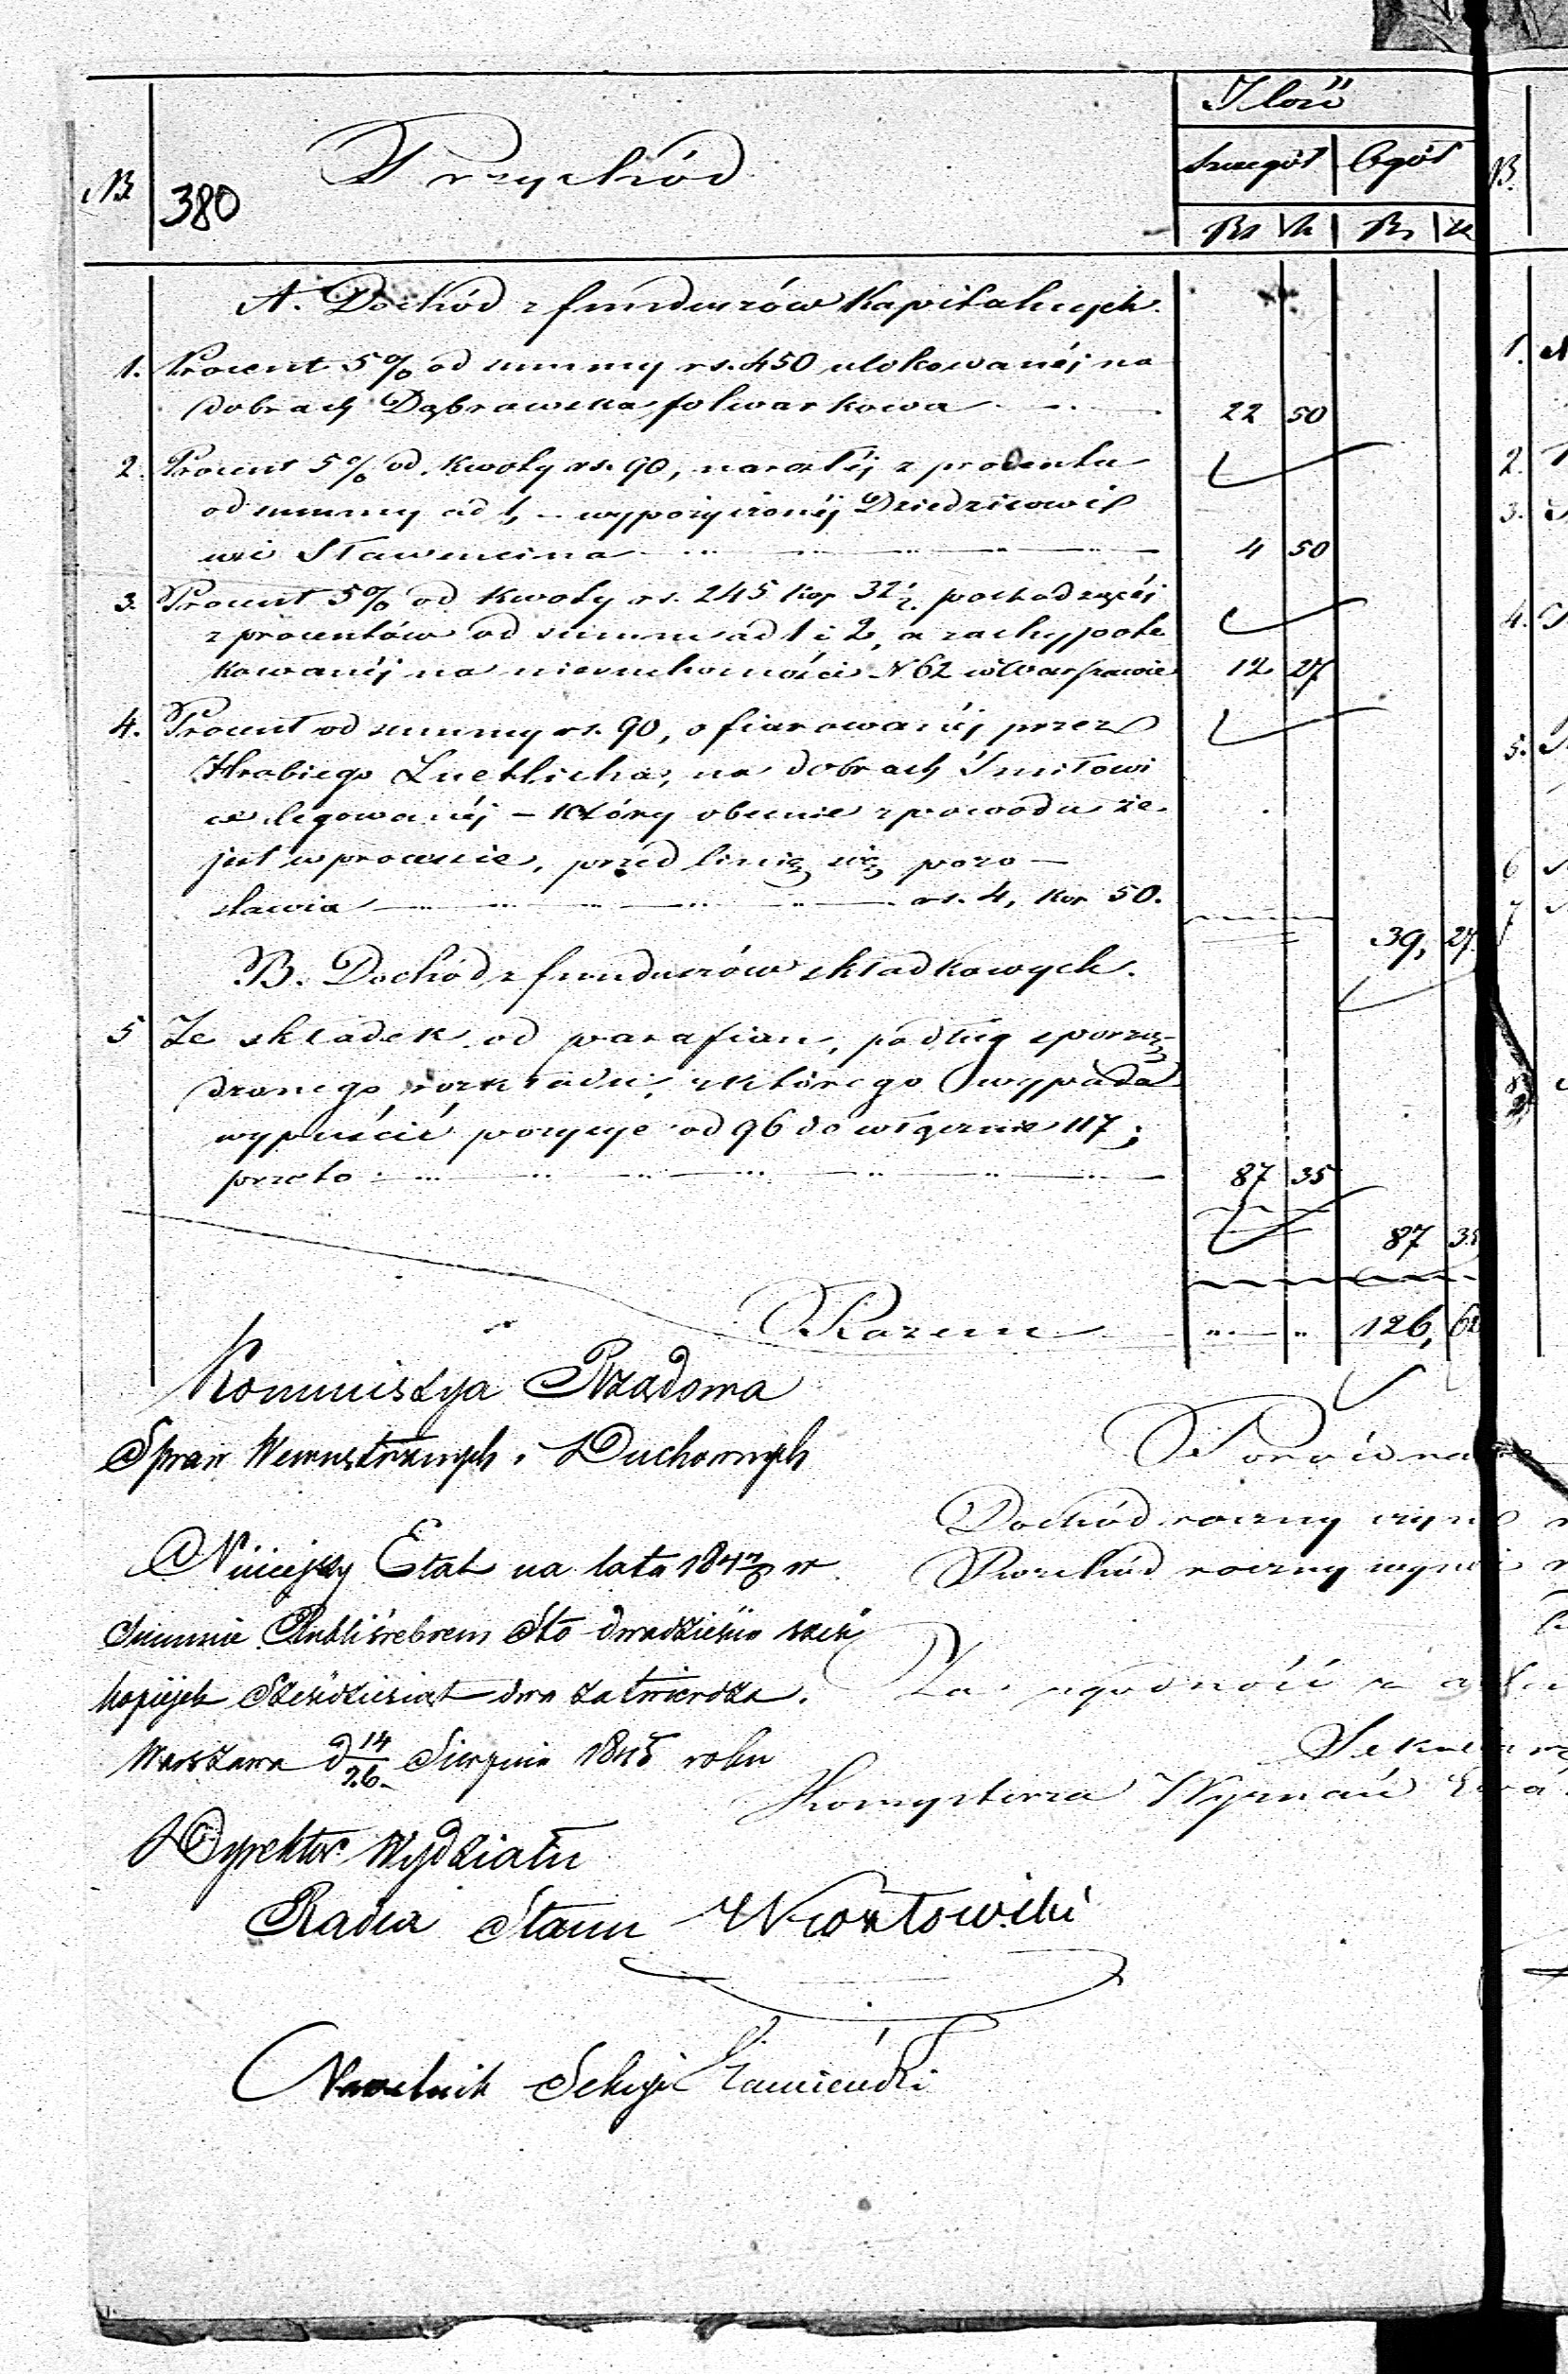 Ilość
Szczegół Ogół
Rs k Rs k
No 380 Przychód
A. Dochód z funduszów Kapitalnych.
1. Procent 5% od summy rs. 450 ulokowanéj na
dobrach Dąbrawska folwarkowa 22 50
2. Procent 5% od kwoty rs. 90, narosłéj z procentu
od summy ad 1, – wypożyczonéj Dziedzicowi
wsi Sławencina 4 50
3. Procent 5% od kwoty rs. 245 kop 32½ pochodzącéj
z procentów od summ ad 1 i 2, a zahypote
kowanéj na nieruchomości N 62 w Warszawie 12 27
4. Procent od summy rs. 90, ofiarowanéj przez
Hrabiego Luetticha, na dobrach Smiłowi
ce legowanéj – który obecnie z powodu że
jest w procesie, przed linią się pozo –
stawia rs. 4, kop 50.
39, 27
B. Dochód z funduszów składkowych.
5 Ze składek od parafian, podług sporzą
dzonego rozkładu, z którego wypada
wypuścić pozycye od 96 do włącznie 117;
przeto 87 35
87 35
Razem 126, 62
Kommissya Rządowa
Spraw Wewnętrznych i Duchownych
Niniejszy Etat na lata 18 w
Summie Rubli srebrem Sto dwadzieścia sześć
kopiejek Sześćdziesiąt dwa zatwierdza.
Warszawa d 14/26 Sierpnia 1845 roku
Dyrektor Wydziału
Radca Stanu
Naczelnik Sekcyi
Dochód roczny
Rozchód roczny
Za zgodność